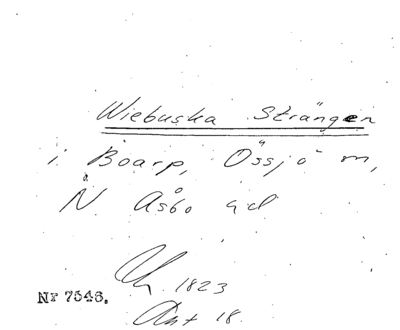 Wiebuska Strängen
i Boarp, Össjö m,
N. Åsbo hd
1823
Ant 18.
Nr 7546.